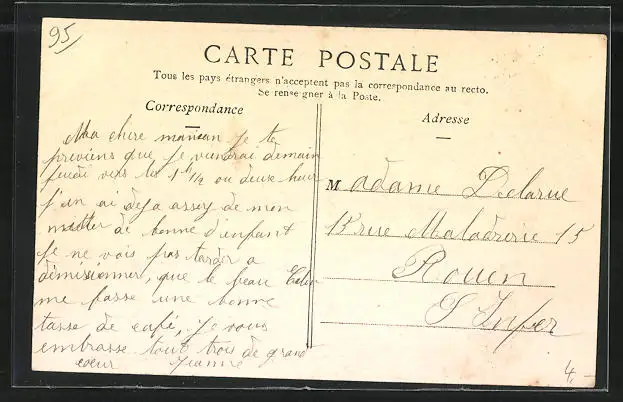 95
CARTE POSTALE
Tous les pays étrangers n'acceptent pas la correspondance au recto.
Se renseigner à la Poste.
Correspondance
Ma chère maman je te
previens que je viendrai demain
jeudi vers les 1h1/2 ou deux heur
j'en ai deja assez de mon
metter de bonne d'enfant
je ne vais pas tarder a
démissionner, que le beau
me fasse une bonne
tasse de café, je vous
embrasse tout trois de grand
coeur Jeanne
Adresse
Madame Delarue
15 rue Maladrerie 15
Rouen
S Infer
4.-